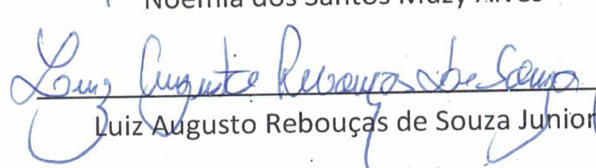 Noemia dos Santos Muzy Alves
Luiz Augusto Rebouças de Souza
Luiz Augusto Rebouças de Souza Junior